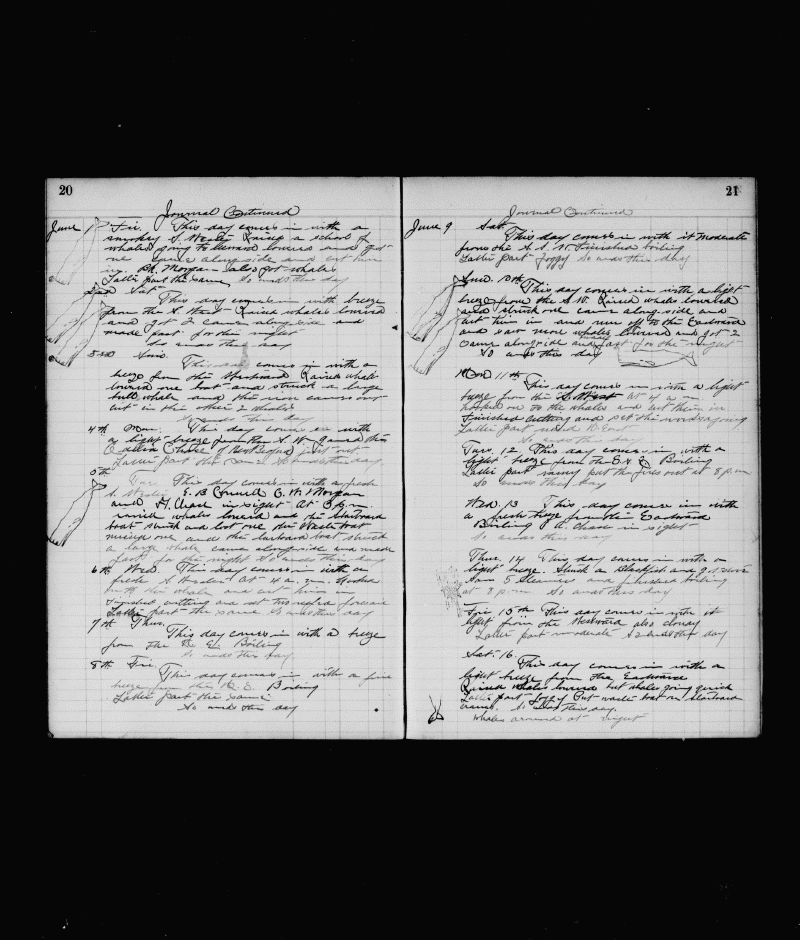 20
Journal Continued
June 1 Fri. This day comes in with a
smoky S. Wester Raised a school of
whales going to leeward lowered and got
one came alongside and cut him
in. Ch. Morgan also got whales
Latter part the same So ends this day
2nd Sat
This day comes in with breeze
from the S. West Raised whales lowered
and got 2 came along side and
made fast for the night
So ends this day
3rd Sun. This day comes in with a
breeze from the Westward Raised whales
lowered one boat and struck a large
bull whale and the iron came out
cut in the other 2 whales
So ends this day
4th Mon. This day comes in with
a light breeze from the S. W. Gamed the
Chase of New Bedford just out
Latter part the same So ends this day
5th
Tues. This day comes in with a fresh
S. Wester E. B Conwell C. W. Morgan
and A. Chase in sight At 3 p.m.
raised whales lowered and the starboard
boat struck and lost one the Waist boat
missed one and the larboard boat struck
a large whale came alongside and made
fast for the night So ends this day
6th Wed. This day comes in with a
fresh S. Wester At 4 a.m. Hooked
on to the whale and cut him in
Finished cutting and set the
Latter part the same So ends this day
7th Thurs.
This day comes in with a breeze
from the N. E. Boiling
So ends this day
8th Fri.
This day comes in with a fine
breeze from the N. E Boiling
Latter part the same
So ends this day
21
Journal Continued
June 9 Sat.
This day comes in with it moderate
from the S. S. W. Finished boiling
Latter part foggy So ends this day
Sun. 10th
This day comes in with a light
breeze from the S. W. Raised whales lowered
and struck one came along side and
cut him in and run off to the Eastward
and saw more whales lowered and got 2
came alongside and made fast for the night
So ends this day
Mon 11th
This day comes in with a light
breeze from the S. West at 4 a.m.
hooked on to the whales and cut them in
Finished cutting and set the
Latter part
So ends this day
Tues. 12. This day comes in with a
light breeze from the Boiling
Latter part rainy put the fires out at 8 p.m
So ends this day
Wed. 13 This day comes in with
a fresh breeze from the Eastward
Boiling A. Chase in sight
So ends this day
Thur. 14 This day comes in with a
light breeze. Struck a Blackfish and got stove
Saw 5 Steamers and finished boiling
at 8 p.m So ends this day
Fri 15th This day comes in with it
light from the Westward also cloudy
Latter part moderate So ends this day
Sat. 16.
This day comes in with a
light breeze from the Eastward
Raised whales lowered but whales going quick
Latter part foggy Put waist boat on starboard
cranes. So ends this day.
Whales around at night